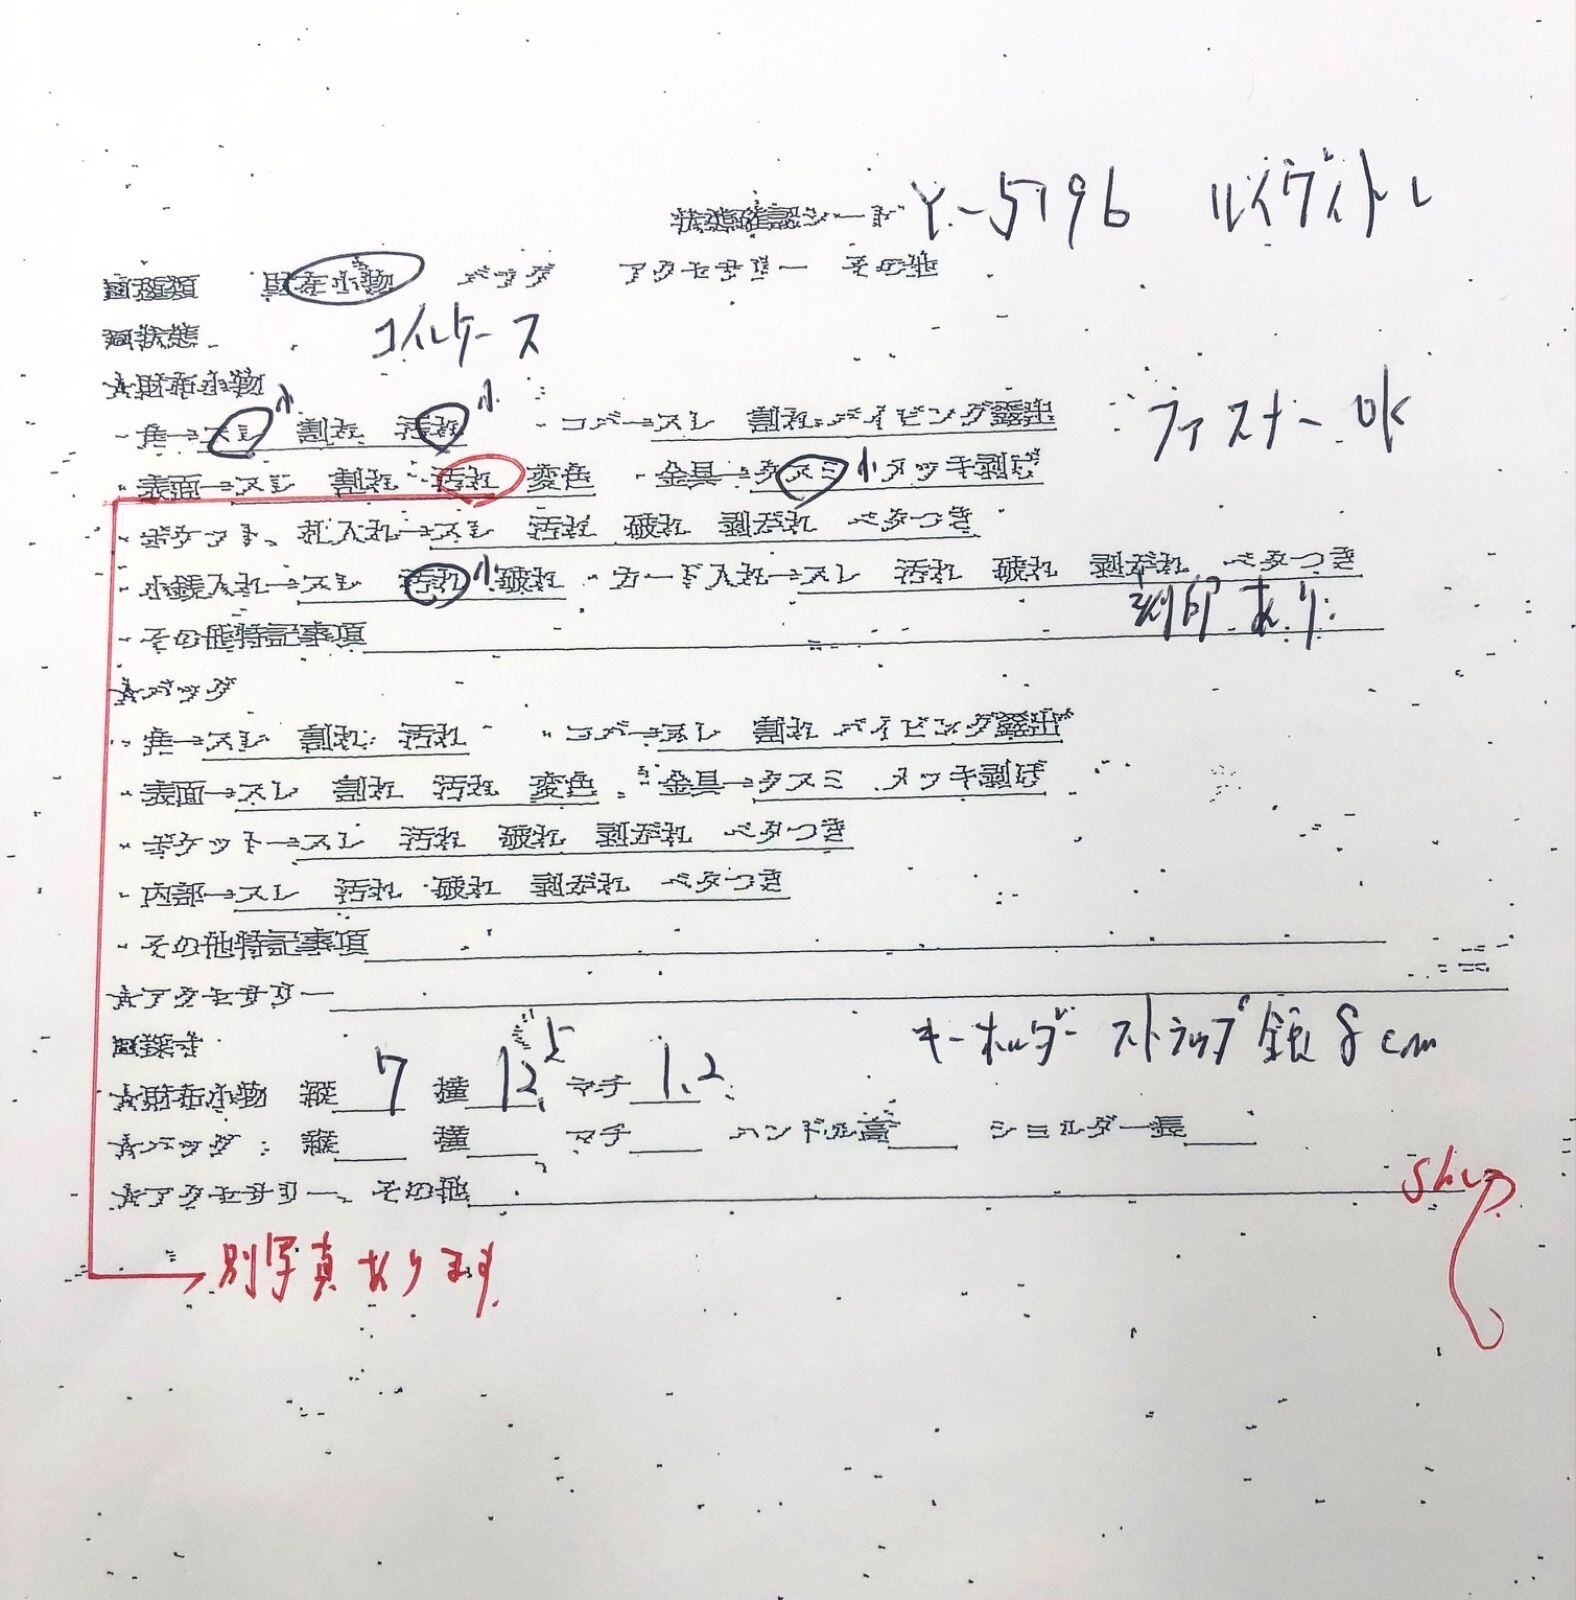 状態確認シート Y-5796 ルイヴィトン
■種類 財布小物 バッグ アクセサリー その他
■状態 コインケース
★財布小物
・角→スレ 小 割れ 汚れ 小 ・コバ→スレ 割れ パイピング露出 ファスナーOK
・表面→スレ 割れ 汚れ 変色 ・金具→クスミ 小 メッキ剥げ
・ポケット、札入れ→スレ 汚れ 破れ 剥がれ ベタつき
・小銭入れ→スレ 汚れ 小 破れ ・カード入れ→スレ 汚れ 破れ 剥がれ ベタつき
・その他特記事項 刻印あり
★バッグ
・角→スレ 割れ 汚れ ・コバ→スレ 割れ パイピング露出
・表面→スレ 割れ 汚れ 変色 ・金具→クスミ メッキ剥げ
・ポケット→スレ 汚れ 破れ 剥がれ ベタつき
・内部→スレ 汚れ 破れ 剥がれ ベタつき
・その他特記事項
★アクセサリー
■採寸 キーホルダー ストラップ 全長 8cm
★財布小物 縦 7 横 12 マチ 1.2
★バッグ 縦 横 マチ ハンドル高 ショルダー長
★アクセサリー、その他
別写真あります